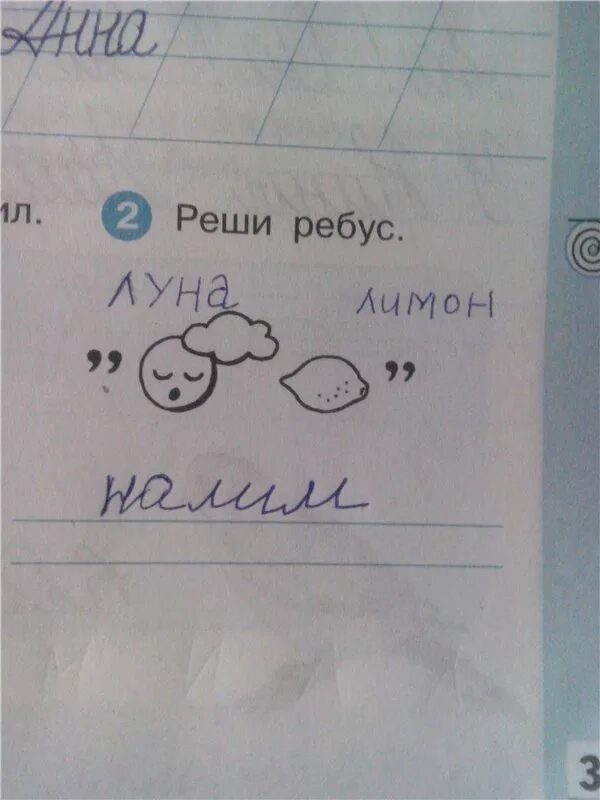 Анна
ил. 2 Реши ребус.
луна лимон
,, ,,
налим
3